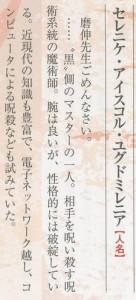 セレニケ・アイスコル・ユグドミレニア【人名】
磨伸先生ごめんなさい。
……“黒”側のマスターの一人。相手を呪い殺す呪
術系統の魔術師。腕は良いが、性格的には破綻してい
る。近現代の知識も豊富で、電子ネットワーク越し、コ
ンピュータによる呪殺なども試みていた。